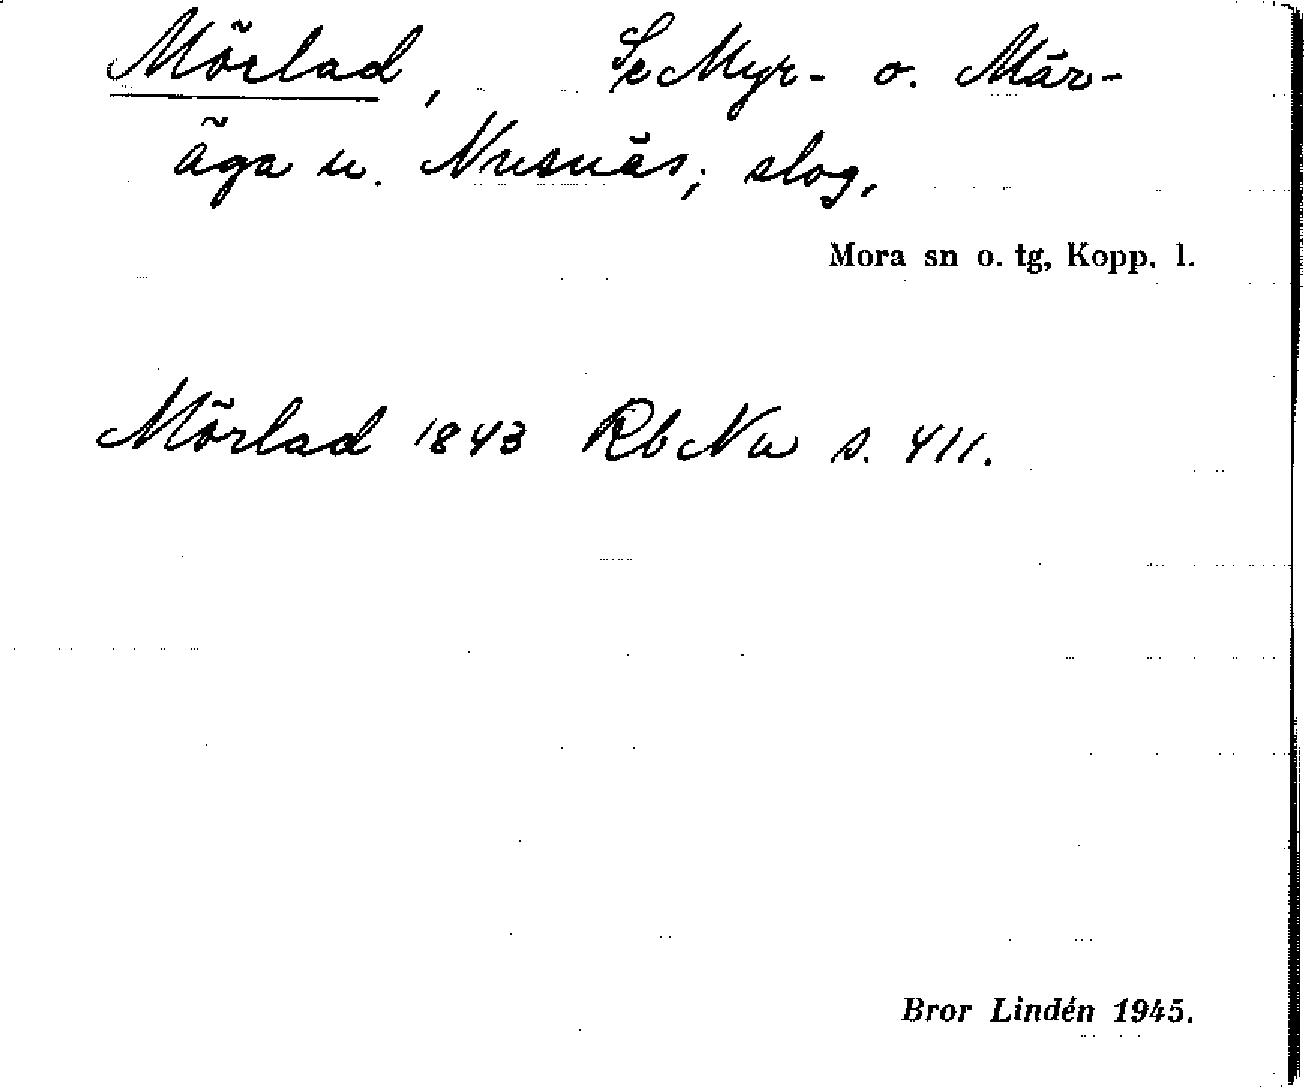 Mörlad, Se Myr- o. Mär-
äga u. Nusnäs; slog,
Mora sn o. tg, Kopp. l.
Mörlad 1843 Rb Nu s. 411.
Bror Lindén 1945.